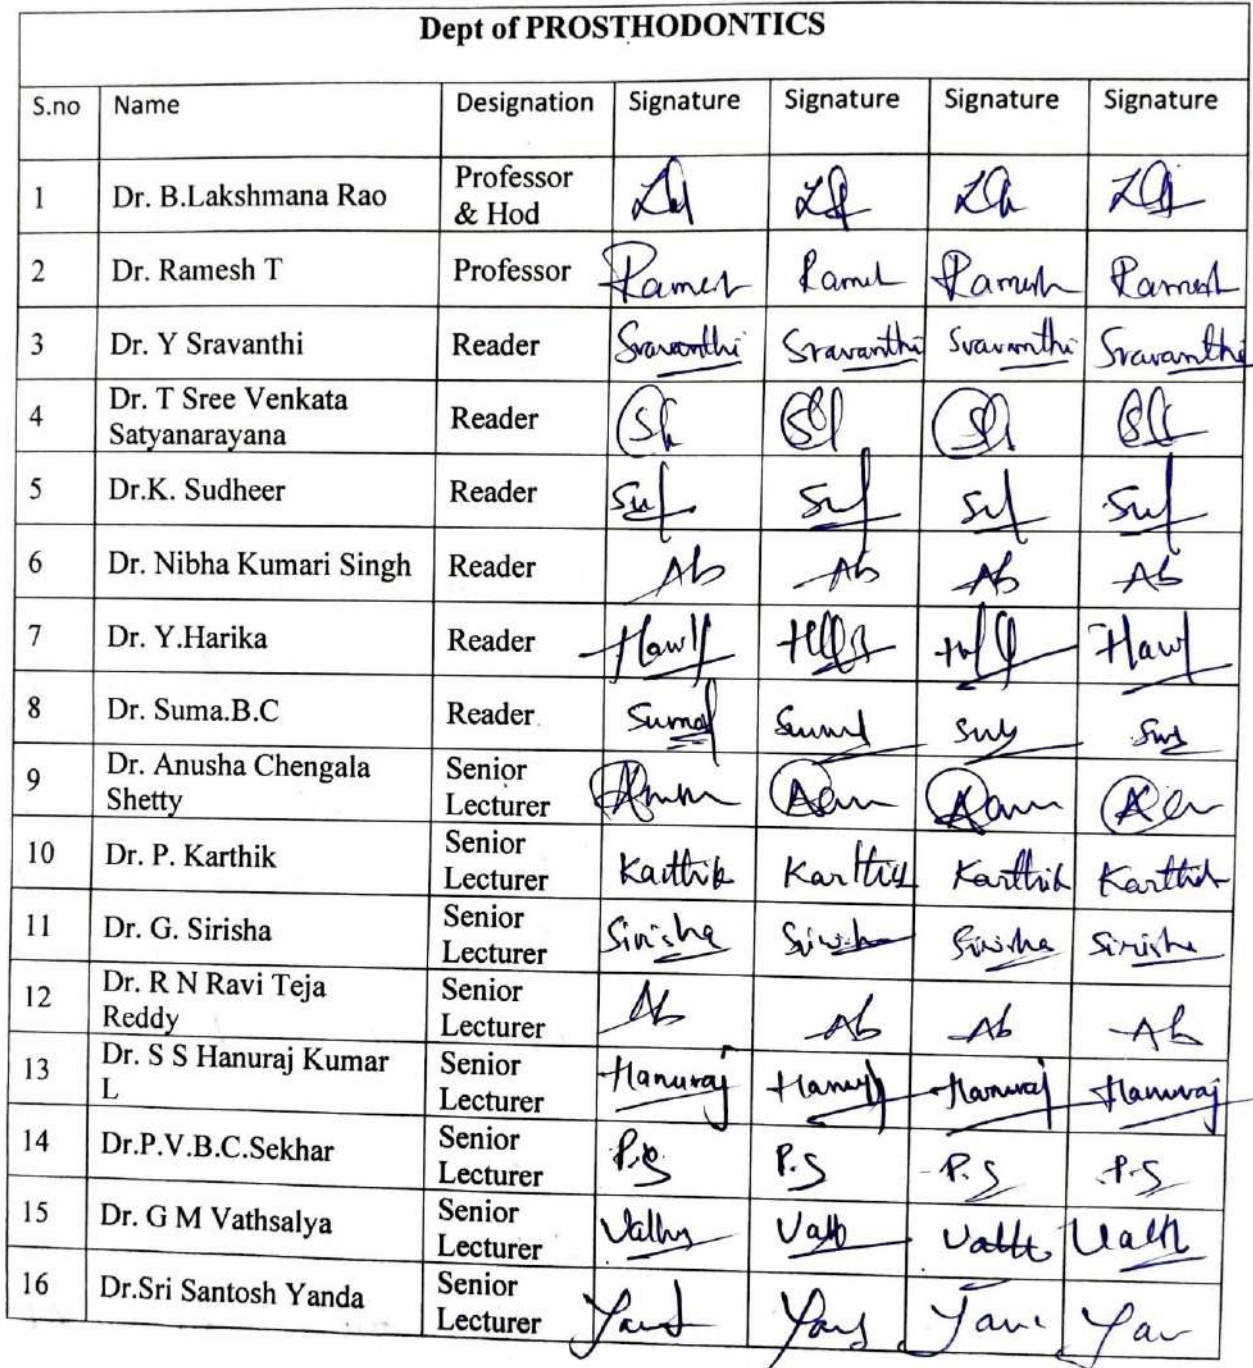 Dept of PROSTHODONTICS
S.no Name Designation Signature Signature Signature Signature
1 Dr. B.Lakshmana Rao Professor
& Hod
2 Dr. Ramesh T Professor Ramesh Ramesh
3 Dr. Y Sravanthi Reader Sravanthi Sravanthi Sravanthi Sravanthi
4 Dr. T Sree Venkata
Satyanarayana Reader
5 Dr.K. Sudheer Reader
6 Dr. Nibha Kumari Singh Reader Ab Ab Ab Ab
7 Dr. Y.Harika Reader
8 Dr. Suma.B.C Reader Suma
9 Dr. Anusha Chengala
Shetty Senior
Lecturer
10 Dr. P. Karthik Senior
Lecturer Karthik Karthik Karthik Karthik
11 Dr. G. Sirisha Senior
Lecturer Sirisha Sirisha Sirisha Sirisha
12 Dr. R N Ravi Teja
Reddy Senior
Lecturer Ab Ab Ab Ab
13 Dr. S S Hanuraj Kumar
L Senior
Lecturer Hanuraj Hanuraj Hanuraj
14 Dr.P.V.B.C.Sekhar Senior
Lecturer P.S P.S P.S P.S
15 Dr. G M Vathsalya Senior
Lecturer
16 Dr.Sri Santosh Yanda Senior
Lecturer